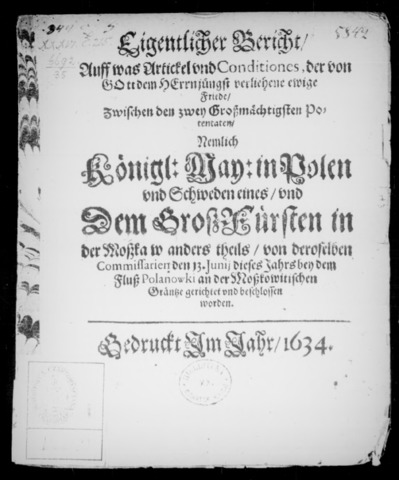 5542
Eigentlicher Bericht/
Auff was Artickel vnd Conditiones, der von
GOtt dem HErrn jüngst verliehene ewige
Friede/
Zwischen den zwey Großmächtigsten Po-
tentaten/
Nemlich
Königl: May: in Polen
vnd Schweden eines/ vnd
Dem GroßFürsten in
der Moßkaw anders theils/ von deroselben
Commissarien den 13. Junij dieses Jahrs bey dem
Fluß Polanowki an der Moßkowitischen
Gräntze gerichtet vnd beschlossen
worden.
Gedruckt Im Jahr/ 1634.